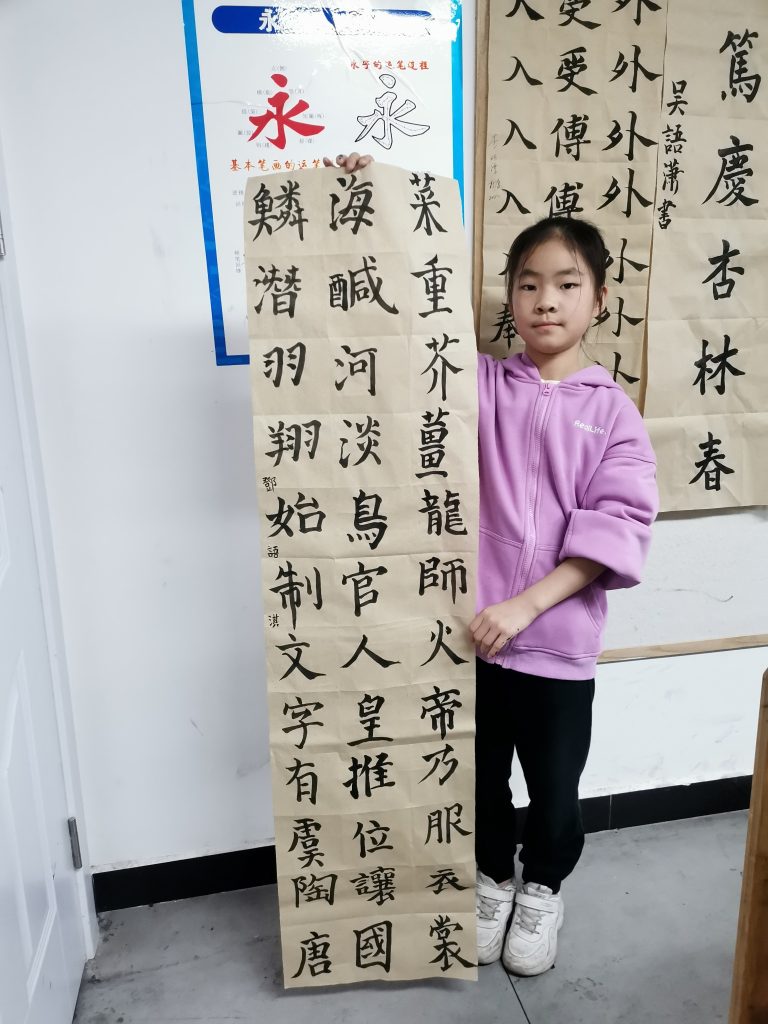 永
永字的运笔过程
永 永
基本笔画的运笔
菜重芥薑龍師火帝乃服衣裳
海醎河淡鳥官人皇推位讓國
鱗潛羽翔始制文字有虞陶唐
鄧語淇
篤慶杏林春
吴語潇書
外外外外外外
受受傅傅
入入入入
奉
RealLife.